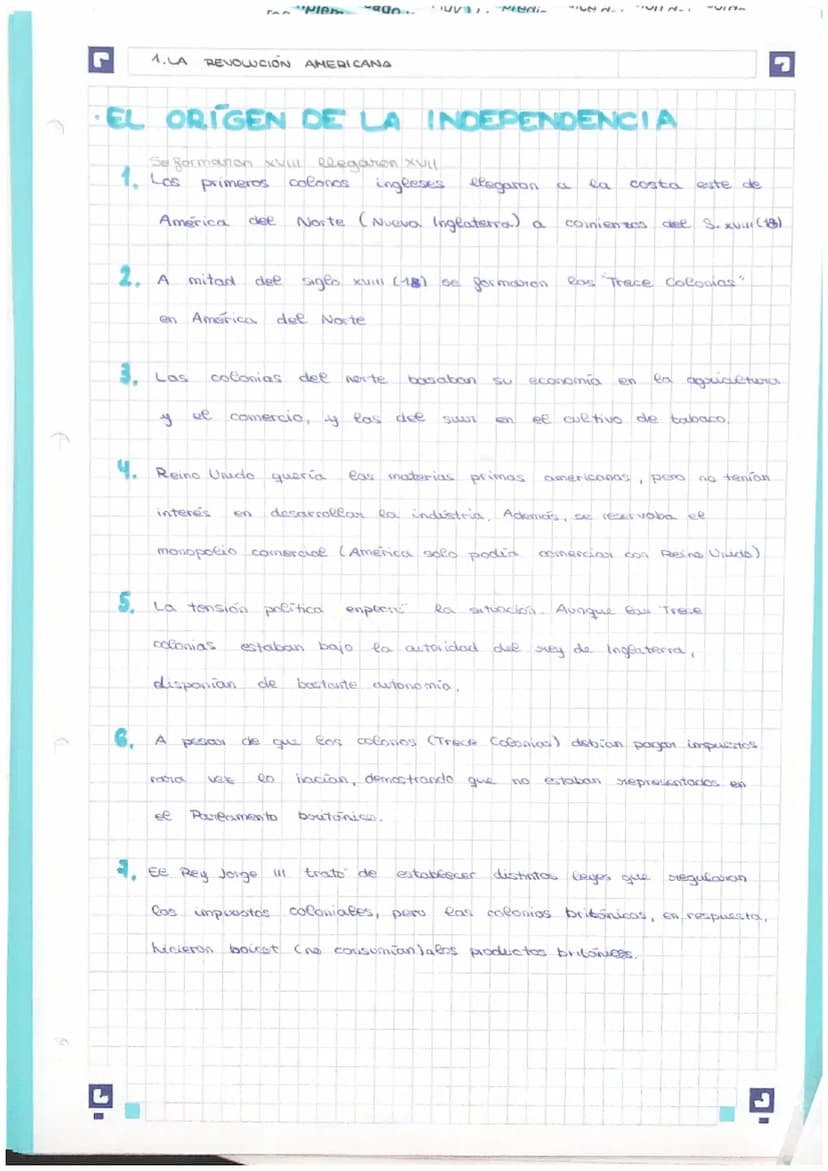 1. LA REVOLUCIÓN AMERICANA
· EL ORÍGEN DE LA INDEPENDENCIA
Se formaron XVIII llegaron XVII
1. Los primeros colonos ingleses llegaron a la costa este de
América del Norte (Nueva Inglaterra) a comienzos del S. XVIII (18)
2. A mitad del siglo XVIII (18) se formaron las "Trece Colonias"
en América del Norte
3. Las colonias del norte basaban su economía en la agricultura
y el comercio, y las del sur en el cultivo de tabaco.
4. Reino Unido quería las materias primas americanas, pero no tenían
interés en desarrollar la indústria. Además, se reservaba el
monopolio comercial (América solo podía comerciar con Reino Unido)
5. La tensión política la situación. Aunque las Trece
colonias estaban bajo la autoridad del rey de Inglaterra,
disponían de bastante autonomía.
6. A pesar de que los colonos (Trece Colonias) debían pagar impuestos
rara vez lo hacían, demostrando que no estaban representados en
el Parlamento británico.
7. El Rey Jorge III trató de establecer distintas leyes que regularan
los impuestos coloniales, pero las colonias británicas, en respuesta,
hicieron boicot (no consumían) a los productos británicos.